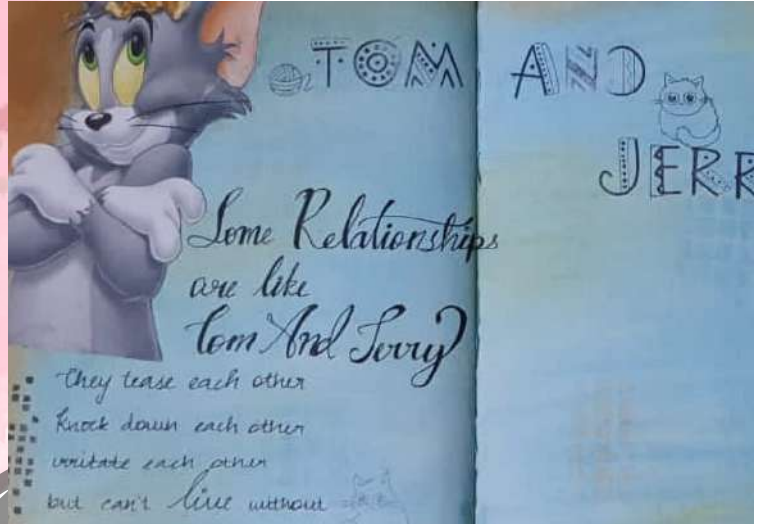 TOM AND
JERR
Some Relationships
are like
Tom And Jerry
They tease each other
Knock down each other
irritate each other
but can't live without